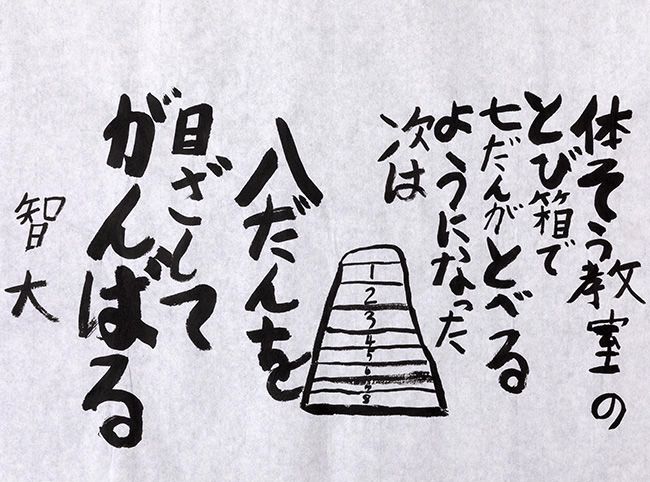 体そう教室の
とび箱で
七だんがとべる
ようになった
次は
八だんを
目ざして
がんばる
智大
1
2
3
4
5
6
7
8